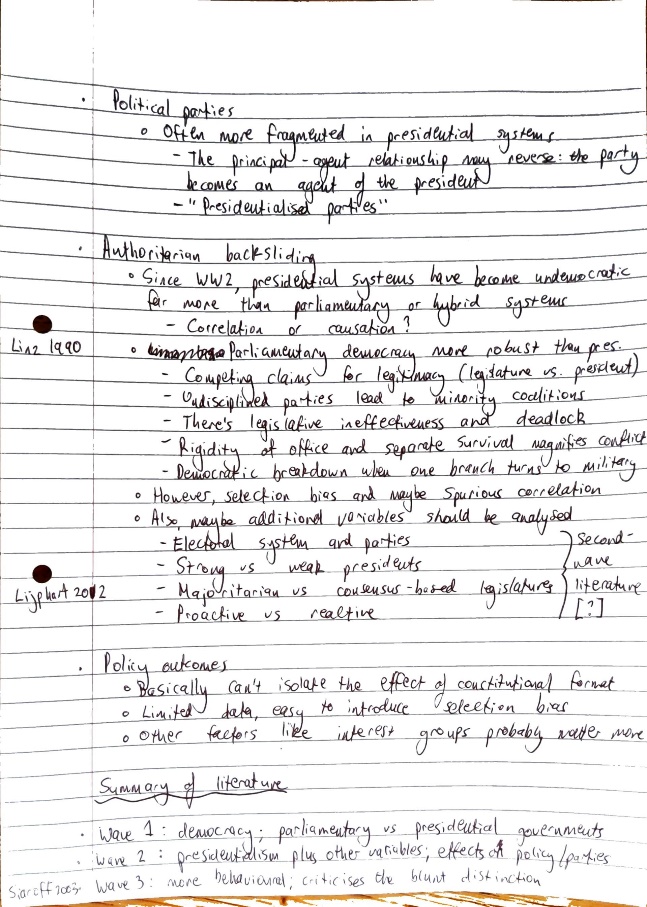 • Political parties
o Often more fragmented in presidential systems
- The principal-agent relationship may reverse: the party
becomes an agent of the president
- "Presidentialised parties"
• Authoritarian backsliding
o Since WW2, presidential systems have become undemocratic
far more than parliamentary or hybrid systems
- Correlation or causation?
Linz 1990 o Parliamentary democracy more robust than pres.
- Competing claims for legitimacy (legislature vs. president)
- Undisciplined parties lead to minority coalitions
- There's legislative ineffectiveness and deadlock
- Rigidity of office and separate survival magnifies conflict
- Democratic breakdown when one branch turns to military
o However, selection bias and maybe spurious correlation
o Also, maybe additional variables should be analysed
- Electoral system and parties
- Strong vs weak presidents
Lijphart 2012 - Majoritarian vs consensus-based legislatures
- Proactive vs reactive
Second-
wave
literature
[?]
• Policy outcomes
o Basically can't isolate the effect of constitutional format
o Limited data, easy to introduce selection bias
o Other factors like interest groups probably matter more
Summary of literature
• Wave 1: democracy; parliamentary vs presidential governments
• Wave 2: presidentialism plus other variables; effects on policy/parties
Siaroff 2003 • Wave 3: more behavioural; criticises the blunt distinction